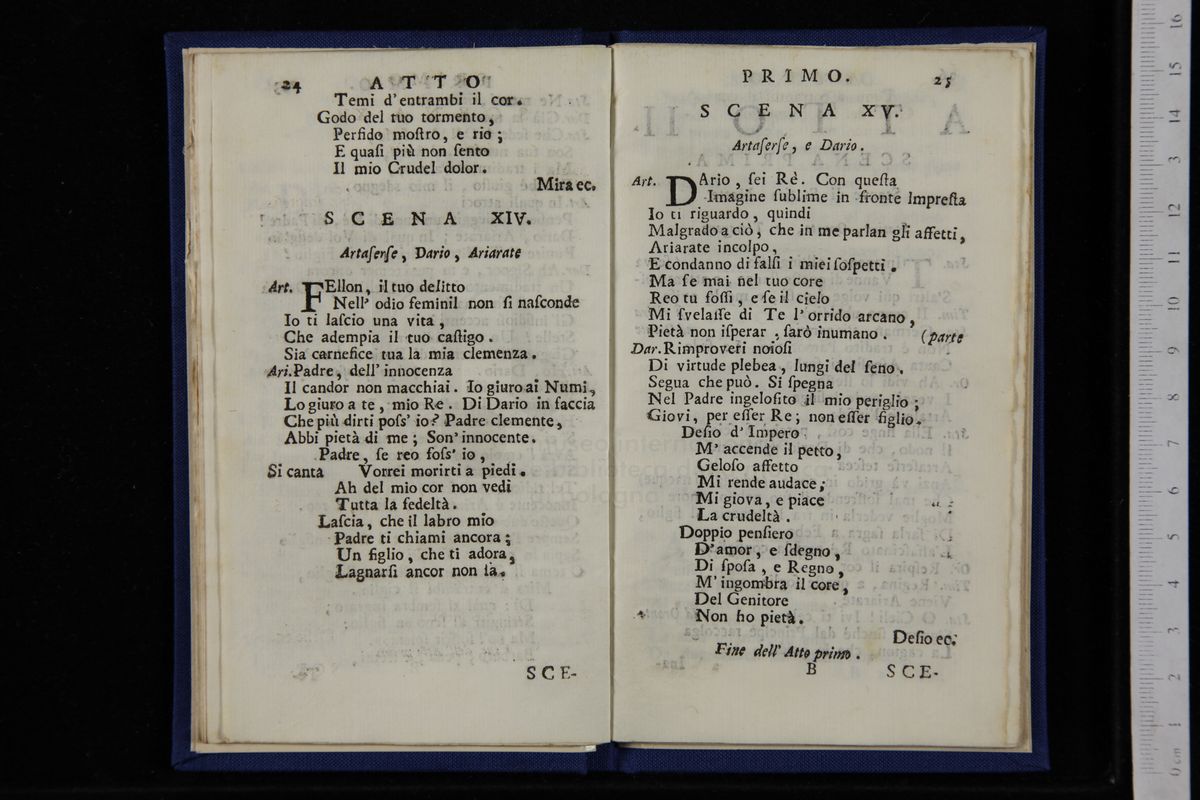 24 ATTO
Temi d'entrambi il cor.
Godo del tuo tormento,
Perfido moſtro, e rio;
E quaſi più non ſento
Il mio Crudel dolor.
Mira ec.
SCENA XIV.
Artaſerſe, Dario, Ariarate
Art. FEllon, il tuo delitto
Nell' odio feminil non ſi naſconde
Io ti laſcio una vita,
Che adempia il tuo caſtigo.
Sia carnefice tua la mia clemenza.
Ari. Padre, dell' innocenza
Il candor non macchiai. Io giuro ai Numi,
Lo giuro a te, mio Re. Di Dario in faccia
Che più dirti poſs' io? Padre clemente,
Abbi pietà di me; Son' innocente.
Padre, ſe reo foſs' io,
Si canta Vorrei morirti a piedi.
Ah del mio cor non vedi
Tutta la fedeltà.
Laſcia, che il labro mio
Padre ti chiami ancora;
Un figlio, che ti adora,
Lagnarſi ancor non ſà.
SCE-
PRIMO. 25
SCENA XV.
Artaſerſe, e Dario.
Art. DArio, ſei Rè. Con queſta
Imagine ſublime in fronte Impreſta
Io ti riguardo, quindi
Malgrado a ciò, che in me parlan gli affetti,
Ariarate incolpo,
E condanno di falſi i miei ſoſpetti.
Ma ſe mai nel tuo core
Reo tu foſſi, e ſe il cielo
Mi ſvelaſſe di Te l'orrido arcano,
Pietà non iſperar, ſarò inumano. (parte
Dar. Rimproveri noioſi
Di virtude plebea, lungi del ſeno.
Segua che può. Si ſpegna
Nel Padre ingeloſito il mio periglio;
Giovi, per eſſer Re; non eſſer figlio.
Deſio d' Impero
M' accende il petto,
Geloſo affetto
Mi rende audace;
Mi giova, e piace
La crudeltà.
Doppio penſiero
D'amor, e ſdegno,
Di ſpoſa, e Regno,
M' ingombra il core,
Del Genitore
Non ho pietà.
Deſio ec.
Fine dell' Atto primo.
B SCE-